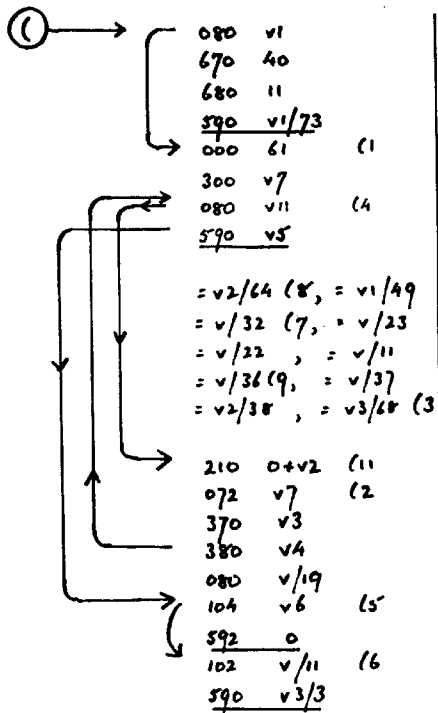 (
080 v1
670 40
680 11
590 v1/73
000 61 (1
300 v7
080 v11 (4
590 v5
= v2/64 (8, = v1/49
= v/32 (7, = v/23
= v/22 , = v/11
= v/36 (9, = v/37
= v2/38 , = v3/68 (3
210 0+v2 (11
072 v7 (2
370 v3
380 v4
080 v/19
104 v6 (5
592 0
102 v/11 (6
590 v3/3